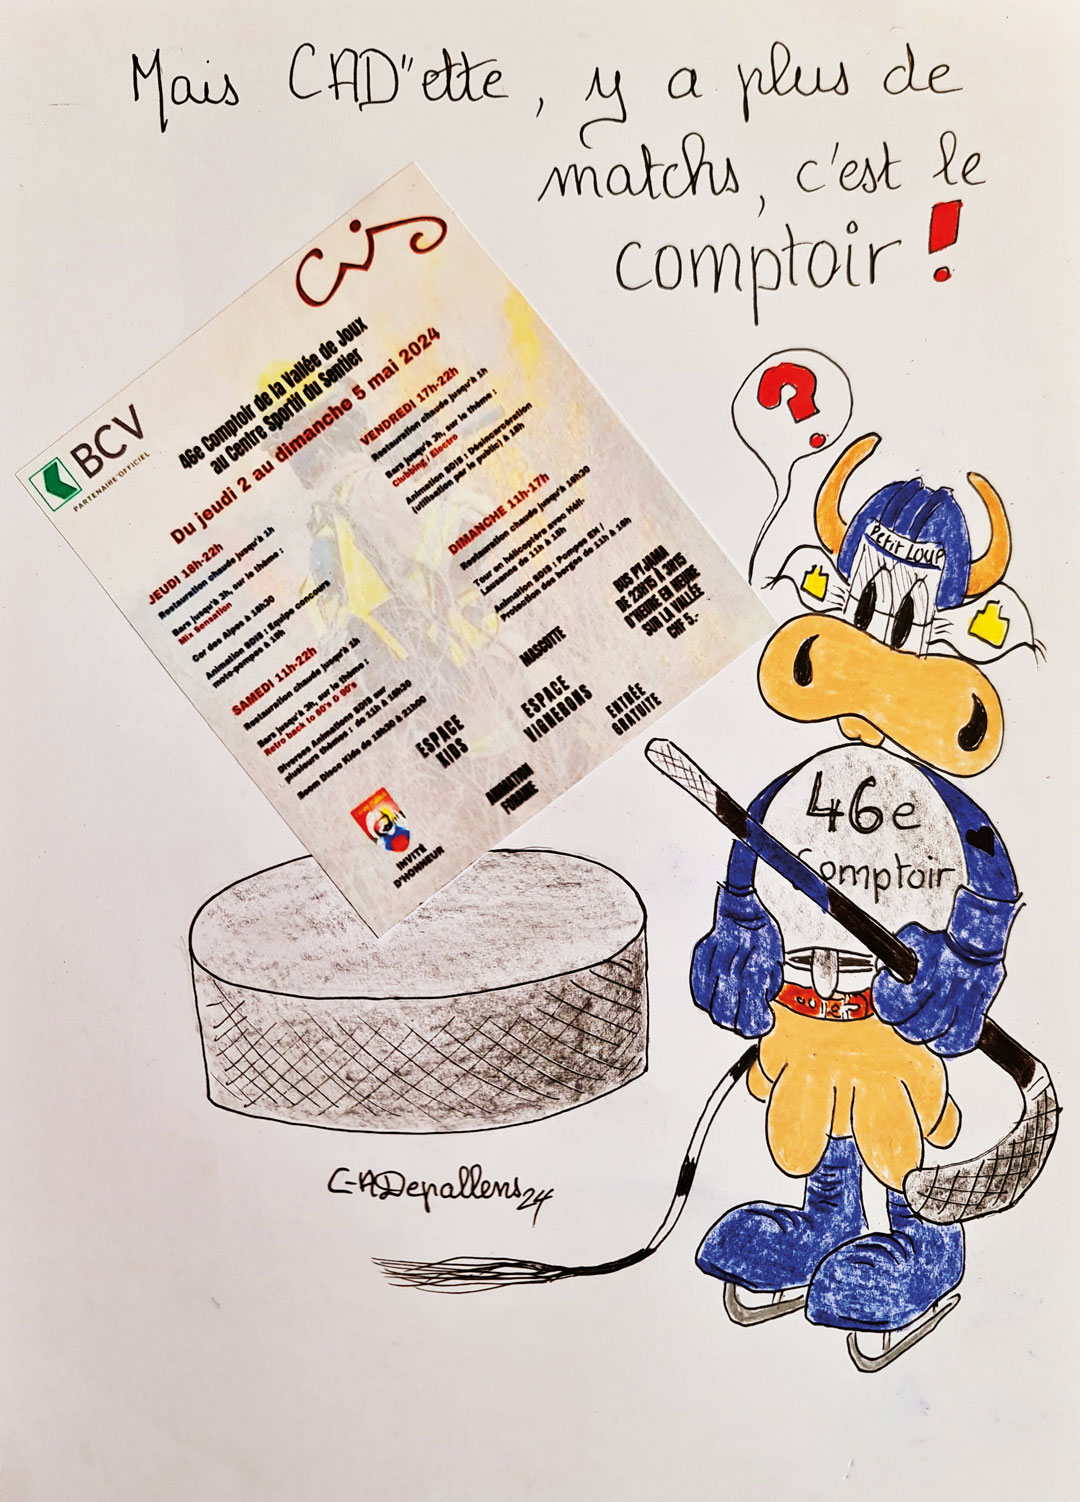 Mais CAD"ette, y a plus de
matchs, c'est le
comptoir !
cis
BCV
PARTENAIRE OFFICIEL
46e Comptoir de la Vallée de Joux
au Centre Sportif du Sentier
Du jeudi 2 au dimanche 5 mai 2024
JEUDI 18h-22h
Restauration chaude jusqu'à 1h
Bars jusqu'à 3h, sur le thème :
Mix Sensation
Cor des Alpes à 18h30
Animation SDIS : Equipe concours
moto-pompes à 19h
SAMEDI 11h-22h
Restauration chaude jusqu'à 1h
Bars jusqu'à 3h, sur le thème :
Retro back to 80's & 90's
Diverses Animations SDIS sur
plusieurs thèmes : de 11h à 18h30
Boom Disco Kids de 18h30 à 21h00
VENDREDI 17h-22h
Restauration chaude jusqu'à 1h
Bars jusqu'à 3h, sur le thème :
Clubbing / Electro
Animation SDIS : Désincarcération
(utilisation par le public) à 18h
DIMANCHE 11h-17h
Restauration chaude jusqu'à 16h30
Tour en hélicoptère avec Héli-
Lausanne de 11h à 16h
Animation SDIS : Pompes EH /
Protection des berges de 11h à 16h
BUS PYJAMA
DE 23H15 À 3H15
D'HEURE EN HEURE
SUR LA VALLÉE
CHF 5.-
MASCOTTE
ESPACE
KIDS
ESPACE
VIGNERONS
ENTRÉE
GRATUITE
ANIMATION
FORAINE
INVITÉ
D'HONNEUR
?
Petit LOUP
46e
Comptoir
C-ADepallens24